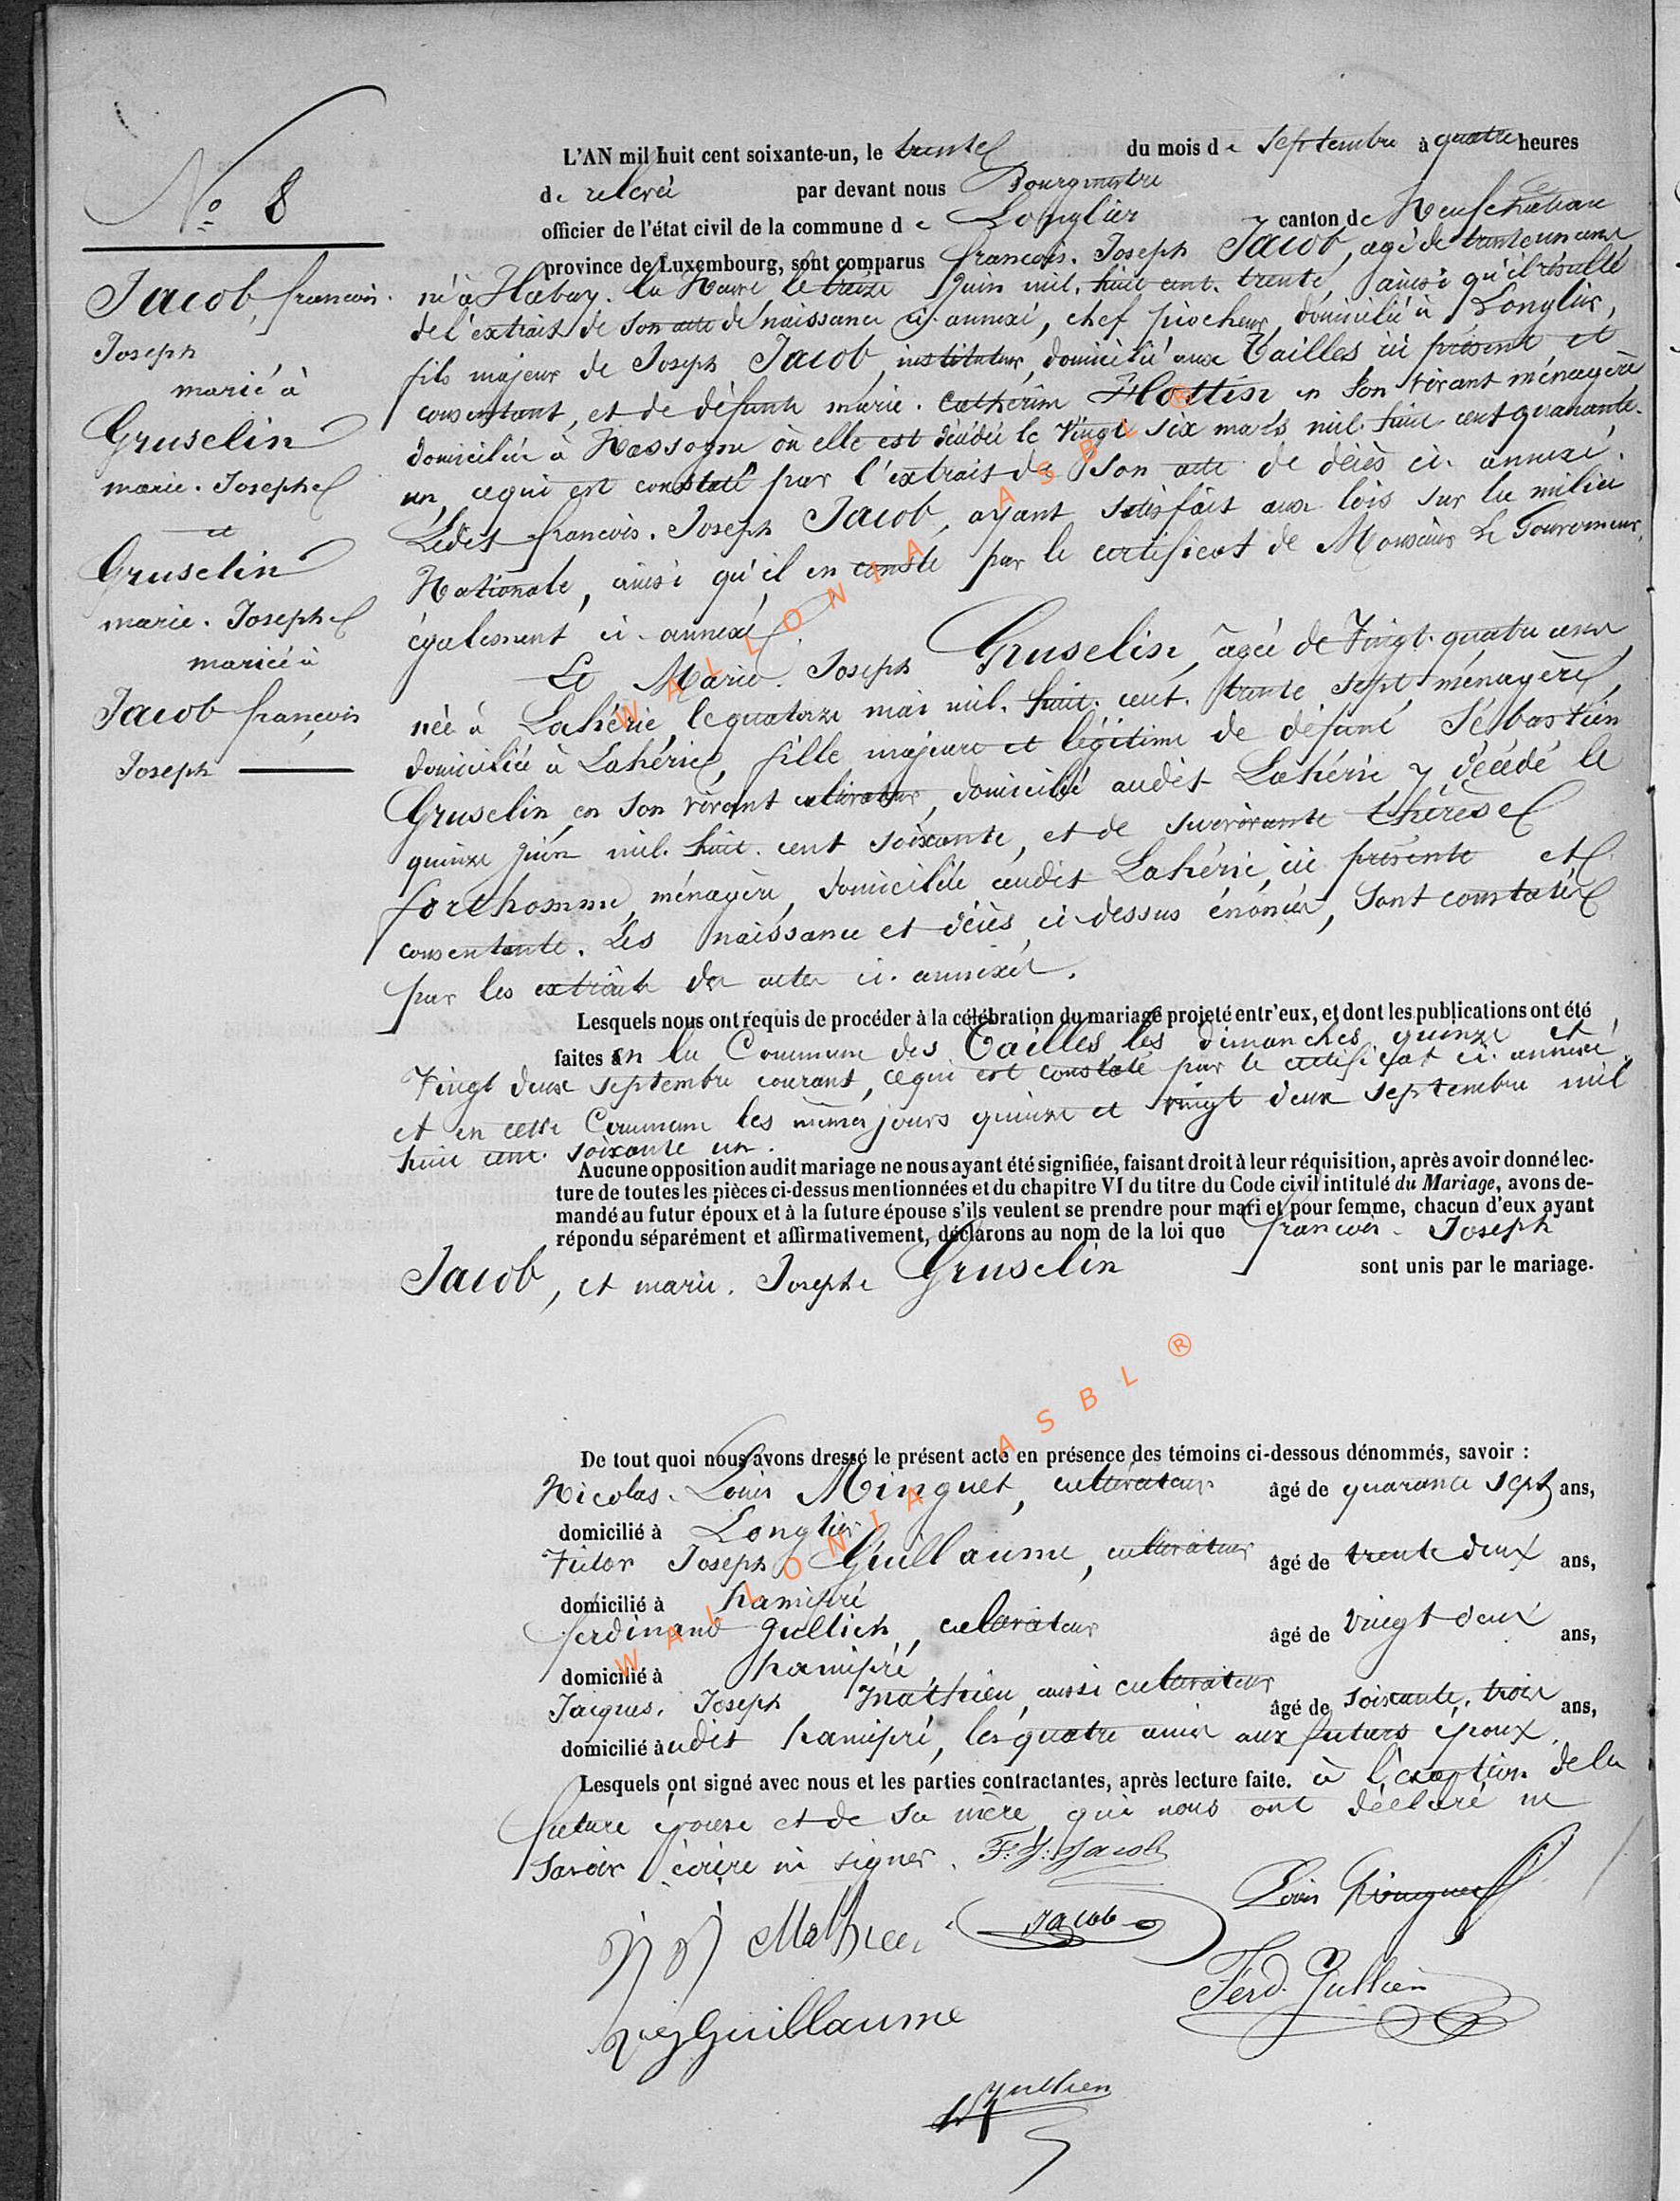 N° 8
Jacob, françois.
Joseph
marié à
Gruselin
marie. Josephe
et
Gruselin
marie. Josephe
mariée à
Jacob françois
Joseph
L'AN mil huit cent soixante-un, le trente du mois de septembre à quatre heures
de relevée par devant nous Bourgmestre
officier de l'état civil de la commune de Longlier canton de Neufchateau
province de Luxembourg, sont comparus françois. Joseph Jacob, agé de trente un ans
né à Habay. la Neuve le treize Juin mil. huit cent. trente, ainsi qu'il résulte
de l'extrait de son acte de naissance ci-annexé, chef piocheur, domicilié à Longlier,
fils majeur de Joseph Jacob, instituteur, domicilié aux Tailles ici présent et
consentant, et de défunte marie. Catherine Hottin en son vivant ménagère
domiciliée à Nassogne où elle est décédée le Vingt six mars mil. huit cent quarante.
un, ce qui est constaté par l'extrait de son acte de décès ci. annexé.
Ledit françois. Joseph Jacob, ayant satisfait aux lois sur la milice
Nationale, ainsi qu'il en conste par le certificat de Monsieur Le Gouverneur,
également ci-annexé.
Et Marie. Joseph Gruselin, âgée de Vingt. quatre ans,
née à Lahérie, le quatorze mai mil. huit. cent. trente sept, ménagère,
domiciliée à Lahérie, fille majeure et légitime de défunt Sébastien
Gruselin, en son vivant cultivateur, domicilié audit Lahérie y décédé le
quinze juin mil. huit. cent soixante, et de survivante thérèse
forthomme, ménagère, domiciliée audit Lahérie, ici présente et
consentante. Les naissance et décès, ci-dessus énoncés, sont constatés
par les extraits des actes ci. annexés.
Lesquels nous ont requis de procéder à la célébration du mariage projeté entr'eux, et dont les publications ont été
faites en la Commune des Tailles, les dimanches quinze et
Vingt deux septembre courant, ce qui est constaté par le certificat ci. annexé,
et en cette Commune les mêmes jours quinze et vingt deux septembre mil
huit cent. soixante un.
Aucune opposition audit mariage ne nous ayant été signifiée, faisant droit à leur réquisition, après avoir donné lec-
ture de toutes les pièces ci-dessus mentionnées et du chapitre VI du titre du Code civil intitulé du Mariage, avons de-
mandé au futur époux et à la future épouse s'ils veulent se prendre pour mari et pour femme, chacun d'eux ayant
répondu séparément et affirmativement, déclarons au nom de la loi que françois. Joseph
Jacob, et marie. Josephe Gruselin sont unis par le mariage.
De tout quoi nous avons dressé le présent acte en présence des témoins ci-dessous dénommés, savoir :
Nicolas. Louis Minguet, cultivateur âgé de quarante sept ans,
domicilié à Longlier
Victor Joseph Guillaume, cultivateur âgé de trente deux ans,
domicilié à hamipré
ferdinand Jullien, cultivateur âgé de vingt deux ans,
domicilié à hamipré
Jacques. Joseph Mathieu, aussi cultivateur âgé de soixante. trois ans,
domicilié audit hamipré, les quatre amis aux futurs époux.
Lesquels ont signé avec nous et les parties contractantes, après lecture faite. à l'exception de la
future épouse et de sa mère qui nous ont déclaré ne
savoir écrire ni signer. F. J. Jacob
Louis Minguet
J J Mathieu Jacob
Ferd. Jullien
V J Guillaume
Jullien
WALLONIA ASBL ®
WALLONIA ASBL ®